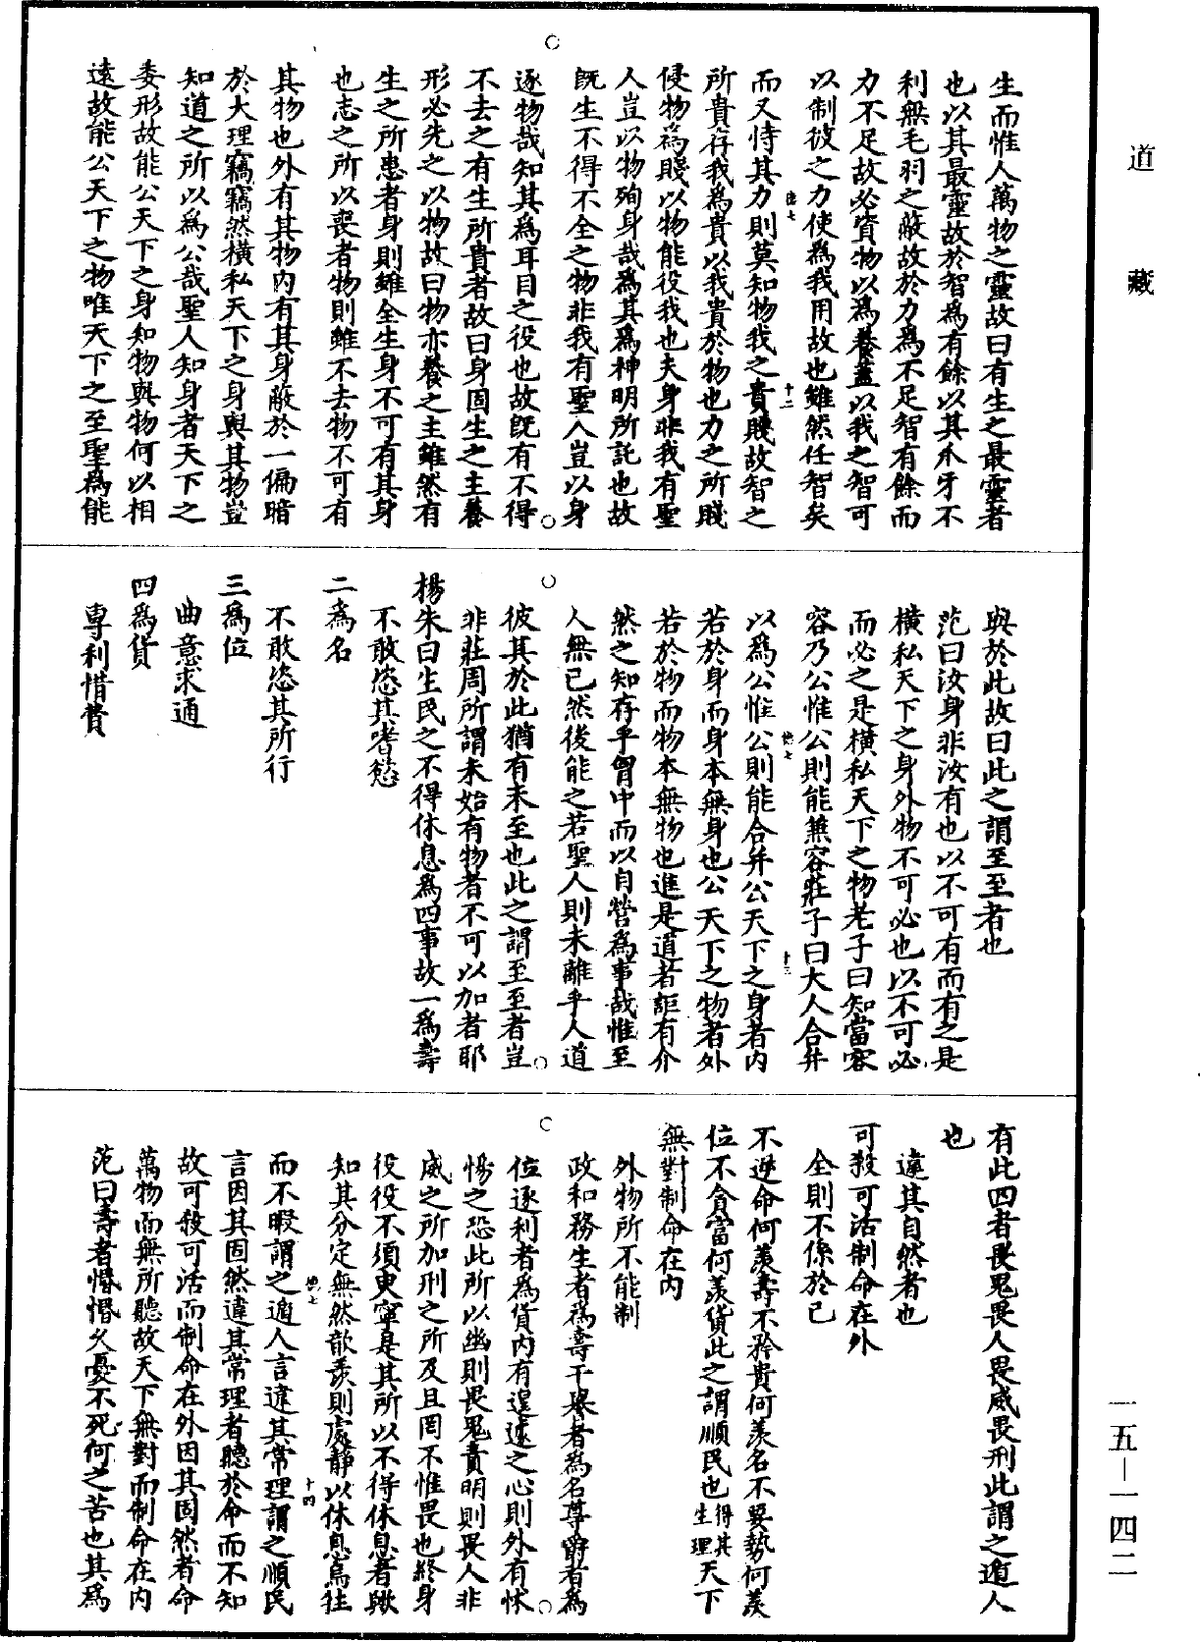 道藏
一五—一四二
生而惟人萬物之靈故曰有生之最靈者
也以其最靈故於智為有餘以其爪牙不
利無毛羽之蔽故於力為不足智有餘而
力不足故必資物以為養蓋以我之智可
以制彼之力使為我用故也雖然任智矣
而又恃其力則莫知物我之貴賤故智之
所貴存我為貴以我貴於物也力之所賤
侵物為賤以物能役我也夫身非我有聖
人豈以物殉身哉為其為神明所託也故
既生不得不全之物非我有聖人豈以身
逐物哉知其為耳目之役也故既有不得
不去之有生所貴者故曰身固生之主養
形必先之以物故曰物亦養之主雖然有
生之所患者身則雖全生身不可有其身
也志之所以喪者物則雖不去物不可有
其物也外有其物內有其身蔽於一偏暗
於大理竊竊然橫私天下之身與其物豈
知道之所以為公哉聖人知身者天下之
委形故能公天下之身知物與物何以相
遠故能公天下之物唯天下之至聖為能
與於此故曰此之謂至至者也
范曰汝身非汝有也以不可有而有之是
橫私天下之身外物不可必也以不可必
而必之是橫私天下之物老子曰知當容
容乃公惟公則能兼容莊子曰大人合并
以為公惟公則能合并公天下之身者內
若於身而身本無身也公天下之物者外
若於物而物本無物也進是道者詎有介
然之知存乎胷中而以自營為事哉惟至
人無已然後能之若聖人則未離乎人道
彼其於此猶有未至也此之謂至至者豈
非莊周所謂未始有物者不可以加者耶
楊朱曰生民之不得休息為四事故一為壽
不敢恣其嗜慾
二為名
不敢恣其所行
三為位
曲意求通
四為貨
專利惜費
有此四者畏鬼畏人畏威畏刑此謂之遁人
也
違其自然者也
可殺可活制命在外
全則不係於己
不逆命何羨壽不矜貴何羨名不要勢何羨
位不貪富何羨貨此之謂順民也得其生理天下
無對制命在內
外物所不能制
政和務生者為壽干譽者為名尊爵者為
位逐利者為貨內有遑遽之心則外有怵
惕之恐此所以幽則畏鬼責明則畏人非
威之所加刑之所及且罔不惟畏也終身
役役不須臾寧是其所以不得休息者歟
知其分定無然歆羨則處靜以休息焉往
而不暇謂之遁人言違其常理謂之順民
言因其固然違其常理者聽於命而不知
故可殺可活而制命在外因其固然者命
萬物而無所聽故天下無對而制命在內
范曰壽者惛惛久憂不死何之苦也其為